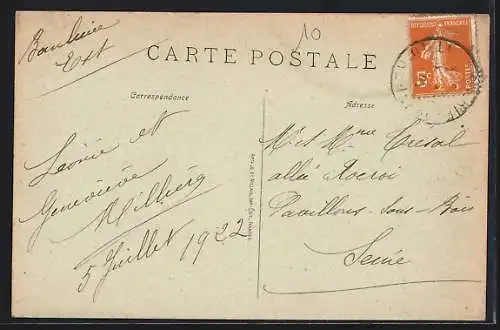 Banlieue
Est
10
CARTE POSTALE
Correspondance
Adresse
Léonie et
Geneviève
Milliérg
5 Juillet 1922
Mr et Mme Creval
allée Rocroi
Pavillons-sous-Bois
Seine
5c